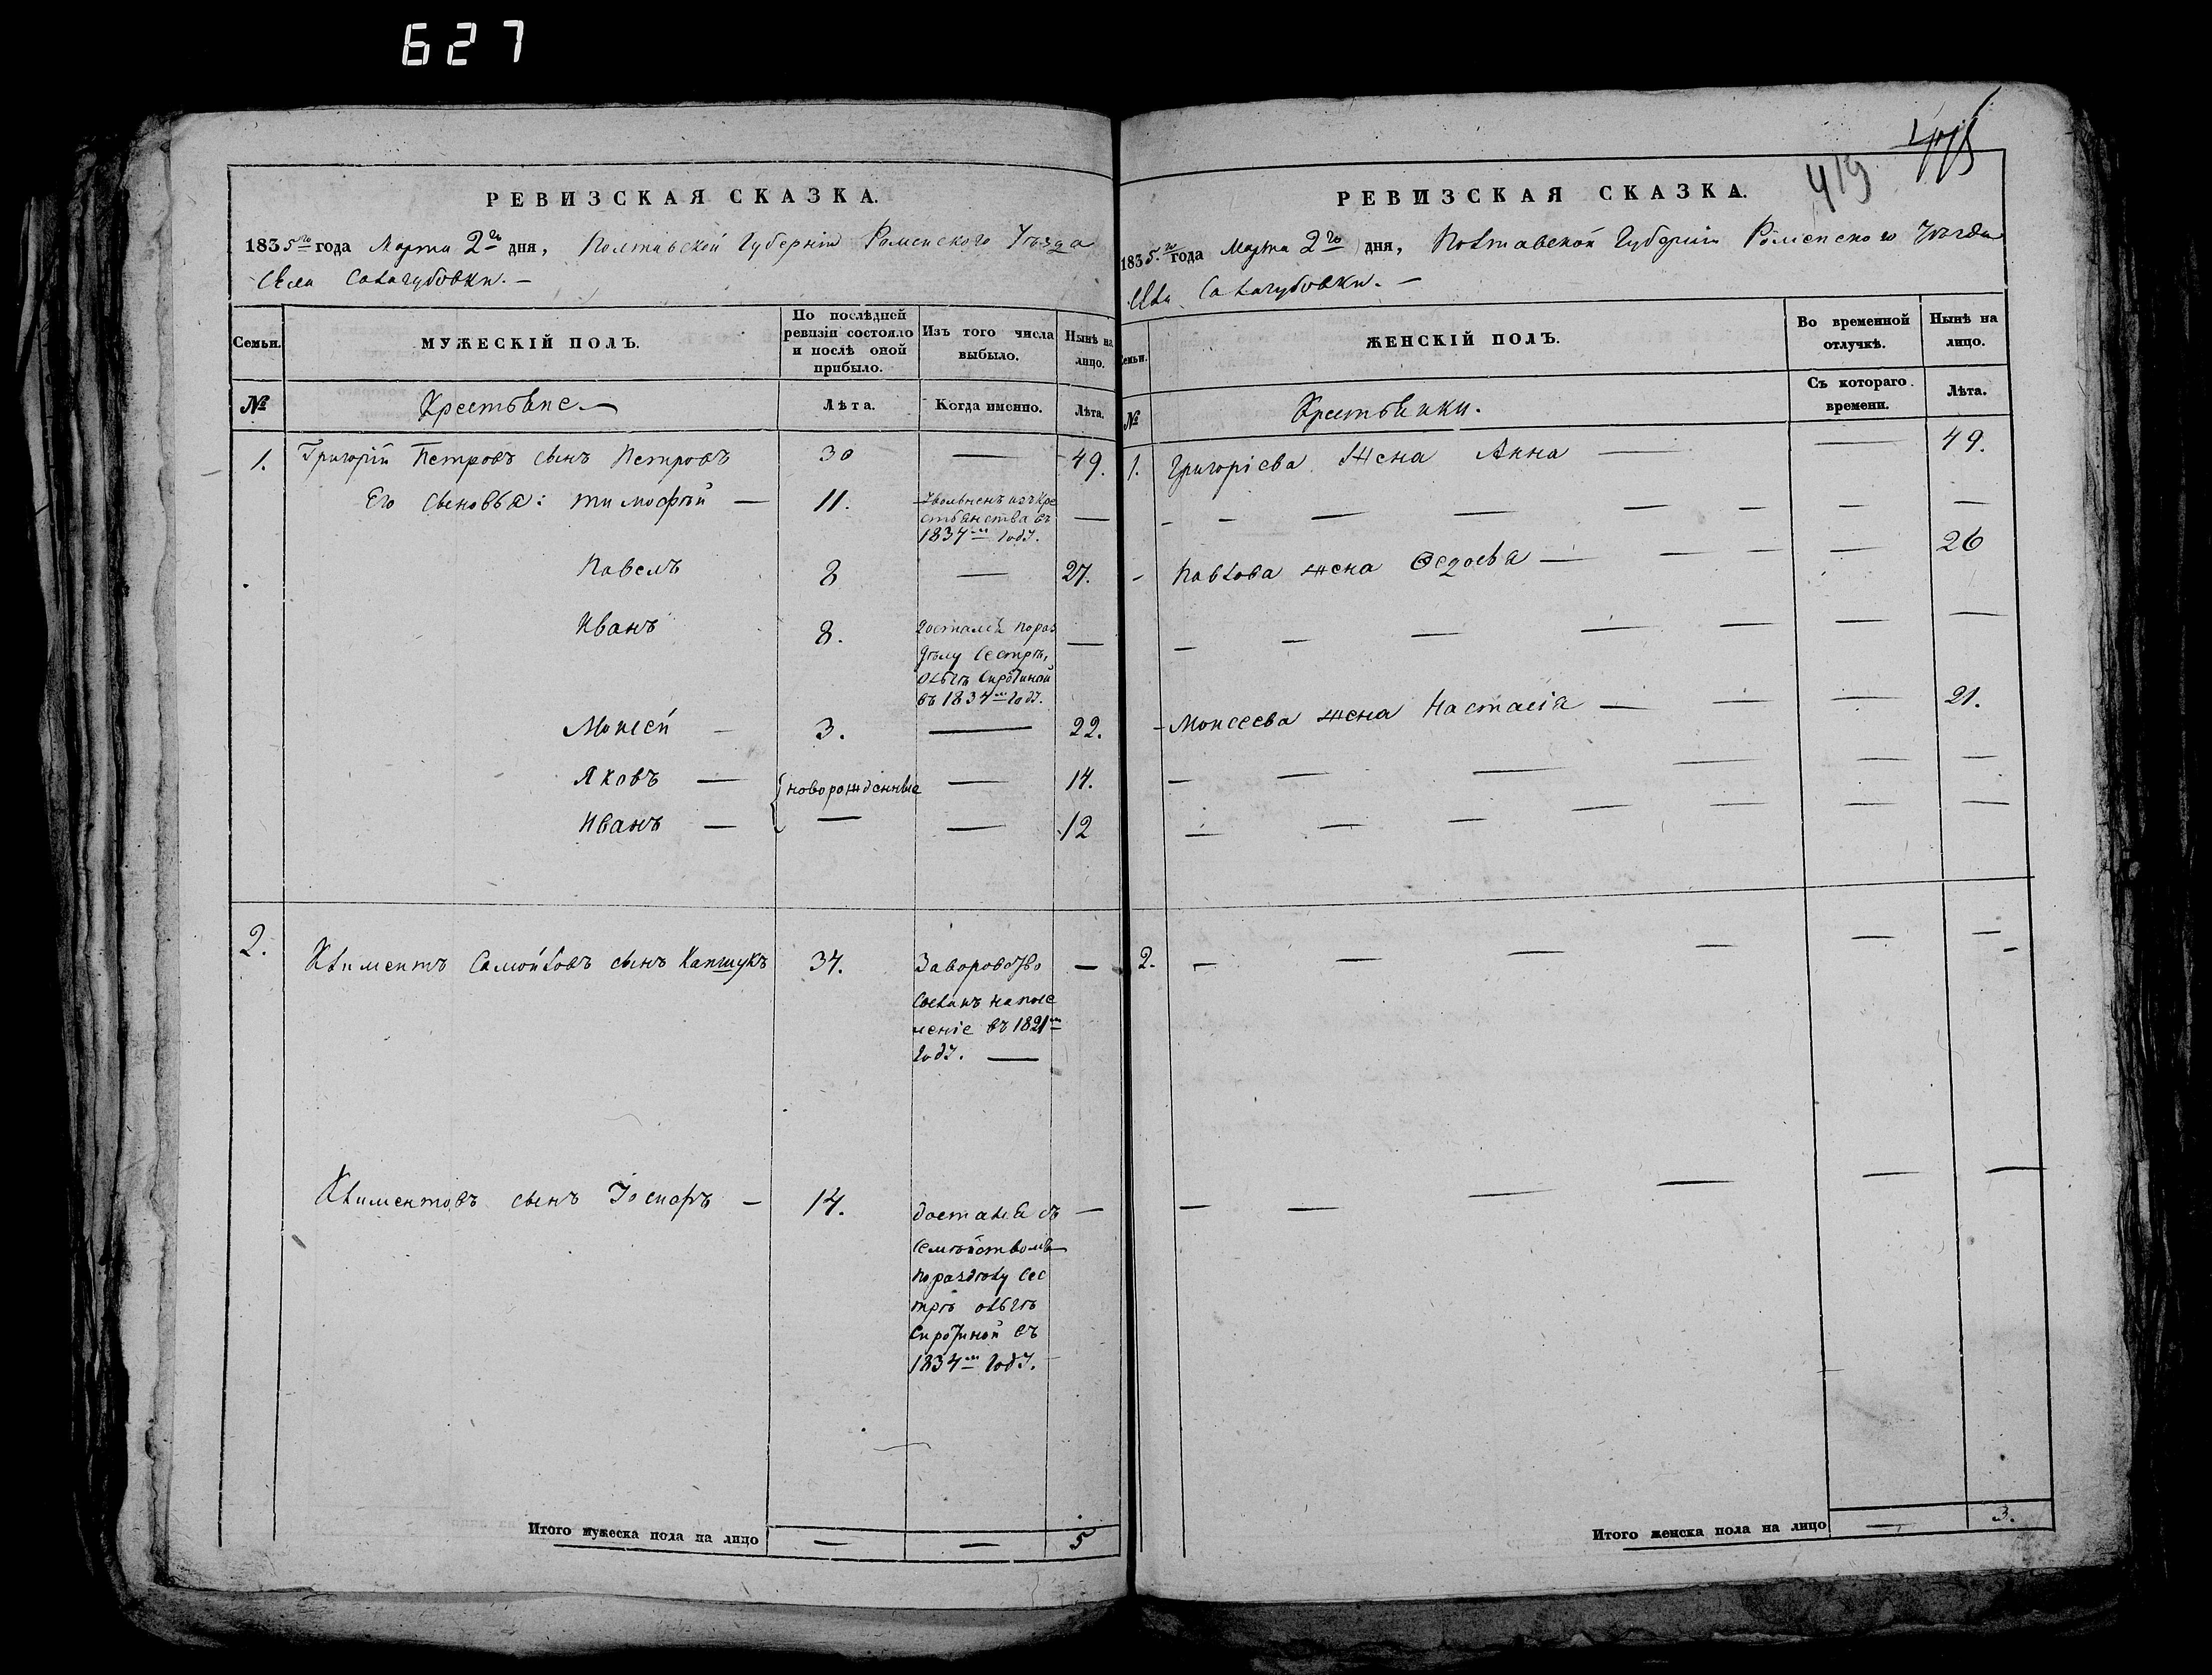 627
РЕВИЗСКАЯ СКАЗКА.
1835го года Марта 2го дня, Полтавской Губерніи Роменского Уѣзда
Села Салогубовки. —
Семьи. МУЖЕСКІЙ ПОЛЪ. По послѣдней ревизіи состояло и послѣ оной прибыло. Изъ того числа выбыло. Нынѣ на лицо.
№ Крестьяне — Лѣта. Когда именно. Лѣта.
1. Григорій Петровъ сынъ Петровъ 30 — 49.
Его сыновья: Тимофѣй — 11. Увольненъ изъ кре
стьянства въ —
1834мъ году.
Павелъ 8 — 27.
Иванъ 8. Достался пораз —
дѣлу сестрѣ,
Ольгѣ Сиротиной
въ 1834мъ году.
Моисей — 3. — 22.
Яковъ — новорожденные — 14.
Иванъ — — — 12
2. Климентъ Самойловъ сынъ Капшукъ 34. За воровство —
сосланъ на посе
леніе въ 1821мъ
году. —
Климентовъ сынъ Іосифъ — 14. достался съ —
семѣйствомъ
по раздѣлу сес
трѣ ольгѣ
Сиротиной въ
1834мъ году.
Итого мужеска пола на лицо — — 5
418
419
РЕВИЗСКАЯ СКАЗКА.
1835.го года Марта 2го дня, Полтавской Губерніи Роменского Уѣзда
Села Салогубовки. —
Семьи. ЖЕНСКІЙ ПОЛЪ. Во временной отлучкѣ. Нынѣ на лицо.
№ Крестьянки. Съ котораго времени. Лѣта.
1. Григоріева жена Анна — — 49.
- Павлова жена Федосья — — 26
- Моисеева жена Настасія — — 21.
2. — — — — — —
Итого женска пола на лицо — 3.